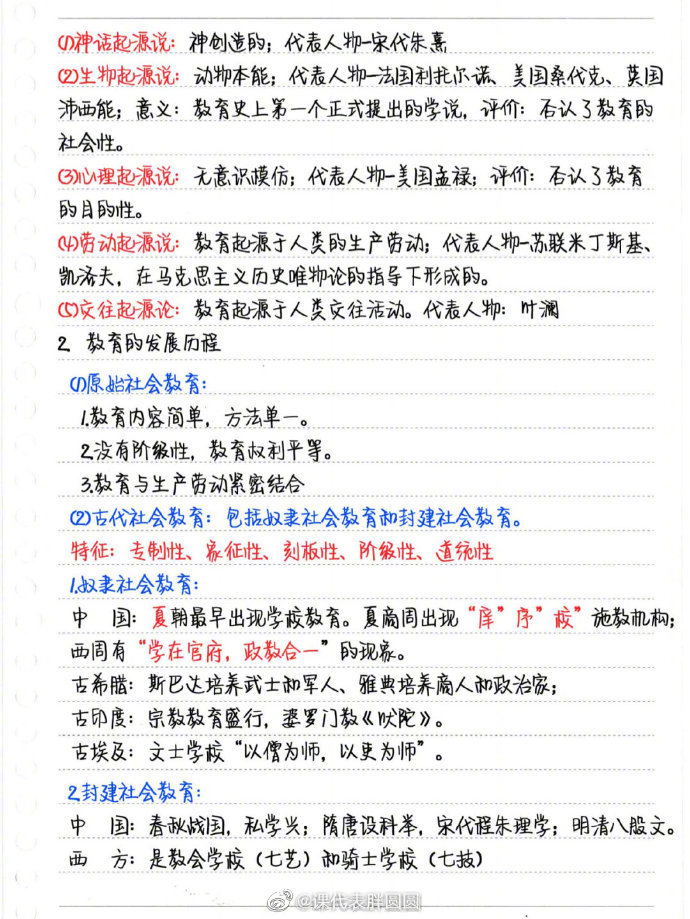 (1)神话起源说：神创造的；代表人物-宋代朱熹
(2)生物起源说：动物本能；代表人物-法国利托尔诺、美国桑代克、英国
沛西能；意义：教育史上第一个正式提出的学说，评价：否认了教育的
社会性。
(3)心理起源说：无意识模仿；代表人物-美国孟禄；评价：否认了教育
的目的性。
(4)劳动起源说：教育起源于人类的生产劳动；代表人物-苏联米丁斯基、
凯洛夫，在马克思主义历史唯物论的指导下形成的。
(5)交往起源论：教育起源于人类交往活动。代表人物：叶澜
2. 教育的发展历程
(1)原始社会教育：
1.教育内容简单，方法单一。
2.没有阶级性，教育权利平等。
3.教育与生产劳动紧密结合
(2)古代社会教育：包括奴隶社会教育和封建社会教育。
特征：专制性、象征性、刻板性、阶级性、道统性
1.奴隶社会教育：
中 国：夏朝最早出现学校教育。夏商周出现“庠”序”校”施教机构；
西周有“学在官府，政教合一”的现象。
古希腊：斯巴达培养武士和军人、雅典培养商人和政治家；
古印度：宗教教育盛行，婆罗门教《吠陀》。
古埃及：文士学校“以僧为师，以吏为师”。
2.封建社会教育：
中 国：春秋战国，私学兴；隋唐设科举，宋代程朱理学；明清八股文。
西 方：是教会学校（七艺）和骑士学校（七技）
@课代表胖圆圆